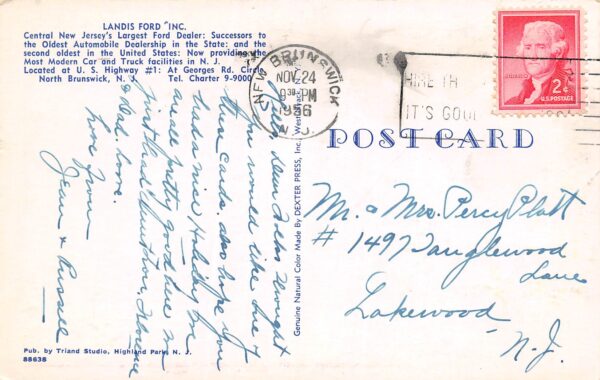 LANDIS FORD "INC.
Central New Jersey's Largest Ford Dealer: Successors to
the Oldest Automobile Dealership in the State; and the
second oldest in the United States: Now providing the
Most Modern Car and Truck facilities in N. J.
Located at U. S. Highway #1: At Georges Rd. Circle
North Brunswick, N. J. Tel. Charter 9-9000
Hello dear Folks Thought
you would like one of
these cards. also hope you
had a nice Holiday. We
are all pretty good here on
Florence
& Dad. Love.
Love from
Jean & Russell
Pub. by Triand Studio, Highland Park, N. J.
88638
Genuine Natural Color Made By DEXTER PRESS, Inc., West
NEW BRUNSWICK
NOV 24
9 30 PM
1956
N. J.
HIRE TH
IT'S GOOD
2¢
U.S. POSTAGE
POST CARD
Mr. & Mrs. Percy Platt
# 1497 Tanglewood
Lane
Lakewood
N-J.